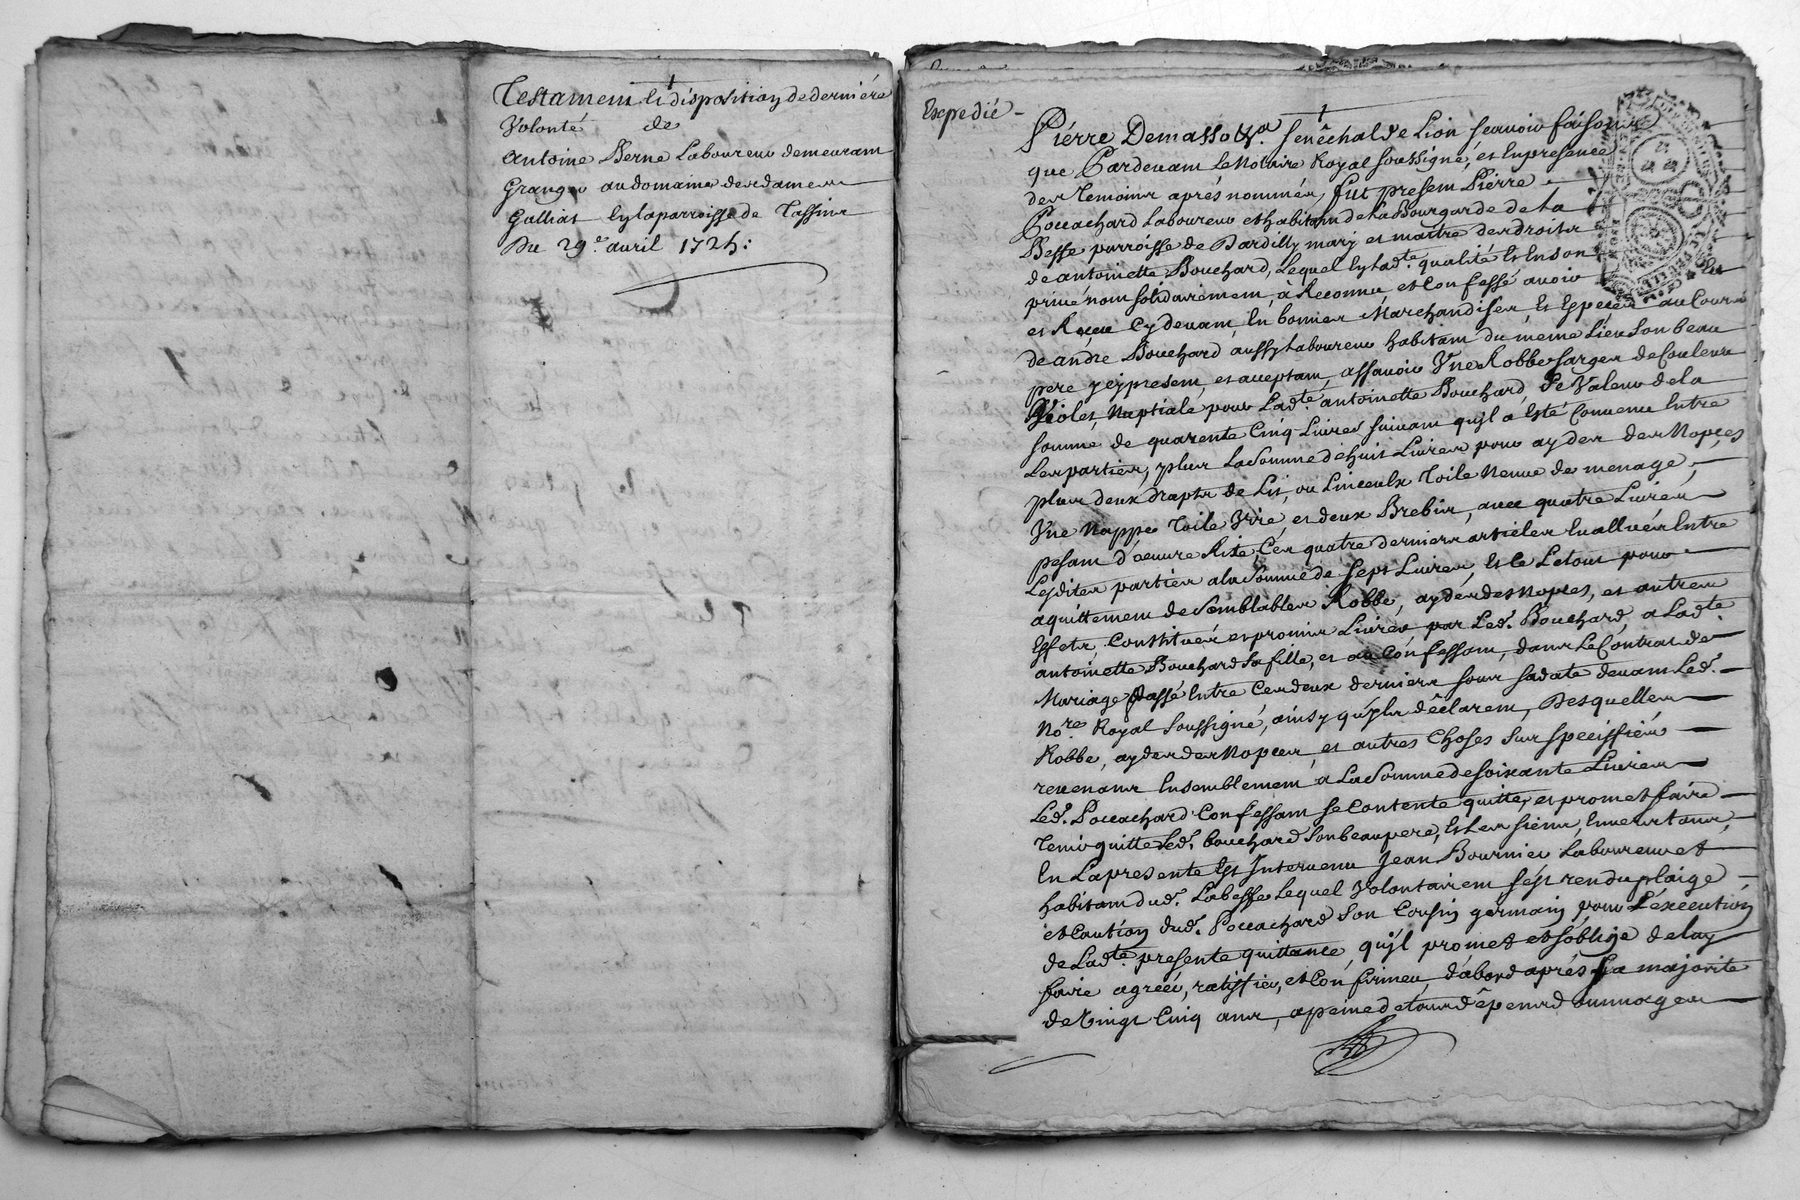 Testament Et disposition de derniére
Volonté de
Antoine Berne Laboureur demeurant
Granger au domaine des dames
Galliat En la parroisse de Tassins
Du 29e. avril 1724:
Expedié -
Piérre Demasso Senêchal de Lion scavoir faisons
que Pardevant Le Notaire Royal soussigné, et En presence
des Temoins aprés nommés, fut present Piérre
Poccachard Laboureur et habitant de La Bourgarde de La
Besse parroisse de Dardilly mary et maitre des droits
de antoinette Bouchard, Lequel En lad.te qualité Et En son
privé nom solidairement, à Reconnu, et Confessé avoir Eu
et Receu Cy devant En bonnes Marchandises, Et Especes au Cours
de andre Bouchard aussy Laboureur habitant du méme Lieu son beau
pere, y present, et acceptant, assavoir Vne Robbe sarges de Couleur
Violet, Nuptiale pour Lad.te antoinette Bouchard De Valeur de la
somme de quarente Cinq Livres suivant qu'jl a Esté Convenu Entre
Les parties, plus La Somme d'huit Livres pour ayder des Nopces
plus deux draps de Lit, ou Linceulx Toile Neuve de menage,
Vne Nappe Toile Vsé, et deux Brebis, avec quatre Livres
pesant d'oeuvre Rite, Ces quatre derniers articles Evallués Entre
Lesdites parties a la Somme de sept Livres, Et Ce Le tout pour
aquittement de Semblables Robbe, ayder des Nopces, et autres
Effets, Constitués et promis Livrer par Led. Bouchard, a Lad.te
antoinette Bouchard sa fille, et au Confessant, dans Le Contrat de
Mariage passé Entre Ces deux derniers sous sa date devant Led.
No.re Royal soussigné, ainsy qu'jls déclarent, Desquelles
Robbe, ayder des Nopces, et autres Choses sus speciffiés
revenants Ensemblement a La Somme de soixante Livres
Led. Poccachard Confessant se Contente quitte, et promet faire
Tenir quitte Led. bouchard son beaupere, Et Les siens, Envers tous,
En La presente Est Intervenu Jean Bournier Laboureur et
habitant dud. Labesse Lequel Volontairemt s'est rendu plaige
et Caution dud. Poccachard son Cousin germain pour L'éxecution
de Lad.te presente quittance, qu'jl promet et s'oblige de luy
faire agréer, ratiffier, et Confirmer, d'abord aprés sa majorité
de Vingt Cinq ans, a peine de tous dêpens dommages